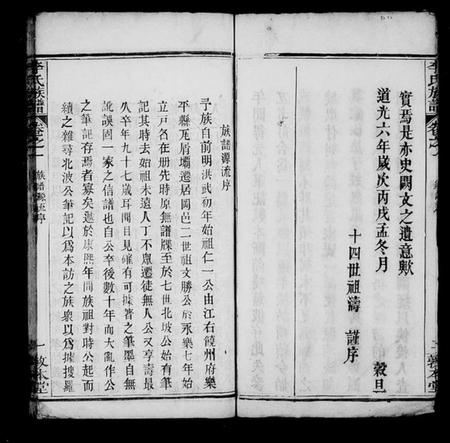 實焉是亦史闕文之遺意歟
道光六年歲次丙戌孟冬月 穀旦
十四世祖濤 謹序
李氏族譜 卷之一
敦本堂
族譜源流序
予族自前明洪武初年始祖仁一公由江右饒州府樂
平縣瓦屑壩遷居岡邑二世祖文勝公於永樂七年始
立戸名在册先時原無譜牒至於七世北坡公始有筆
記其時去始祖未遠人丁不廣遷徙無人公又享壽最
久卒年九十七歲耳聞目見確有可據著之筆墨自無
訛誤固一家之信譜也自公卒後數十年而大亂作公
之筆記存焉者寡矣遜於康熙年間族祖對時公起而
續之雜尋北波公筆記以爲本訪之族衆以爲據搜羅
李氏族譜 卷之一 族譜源流序
敦本堂